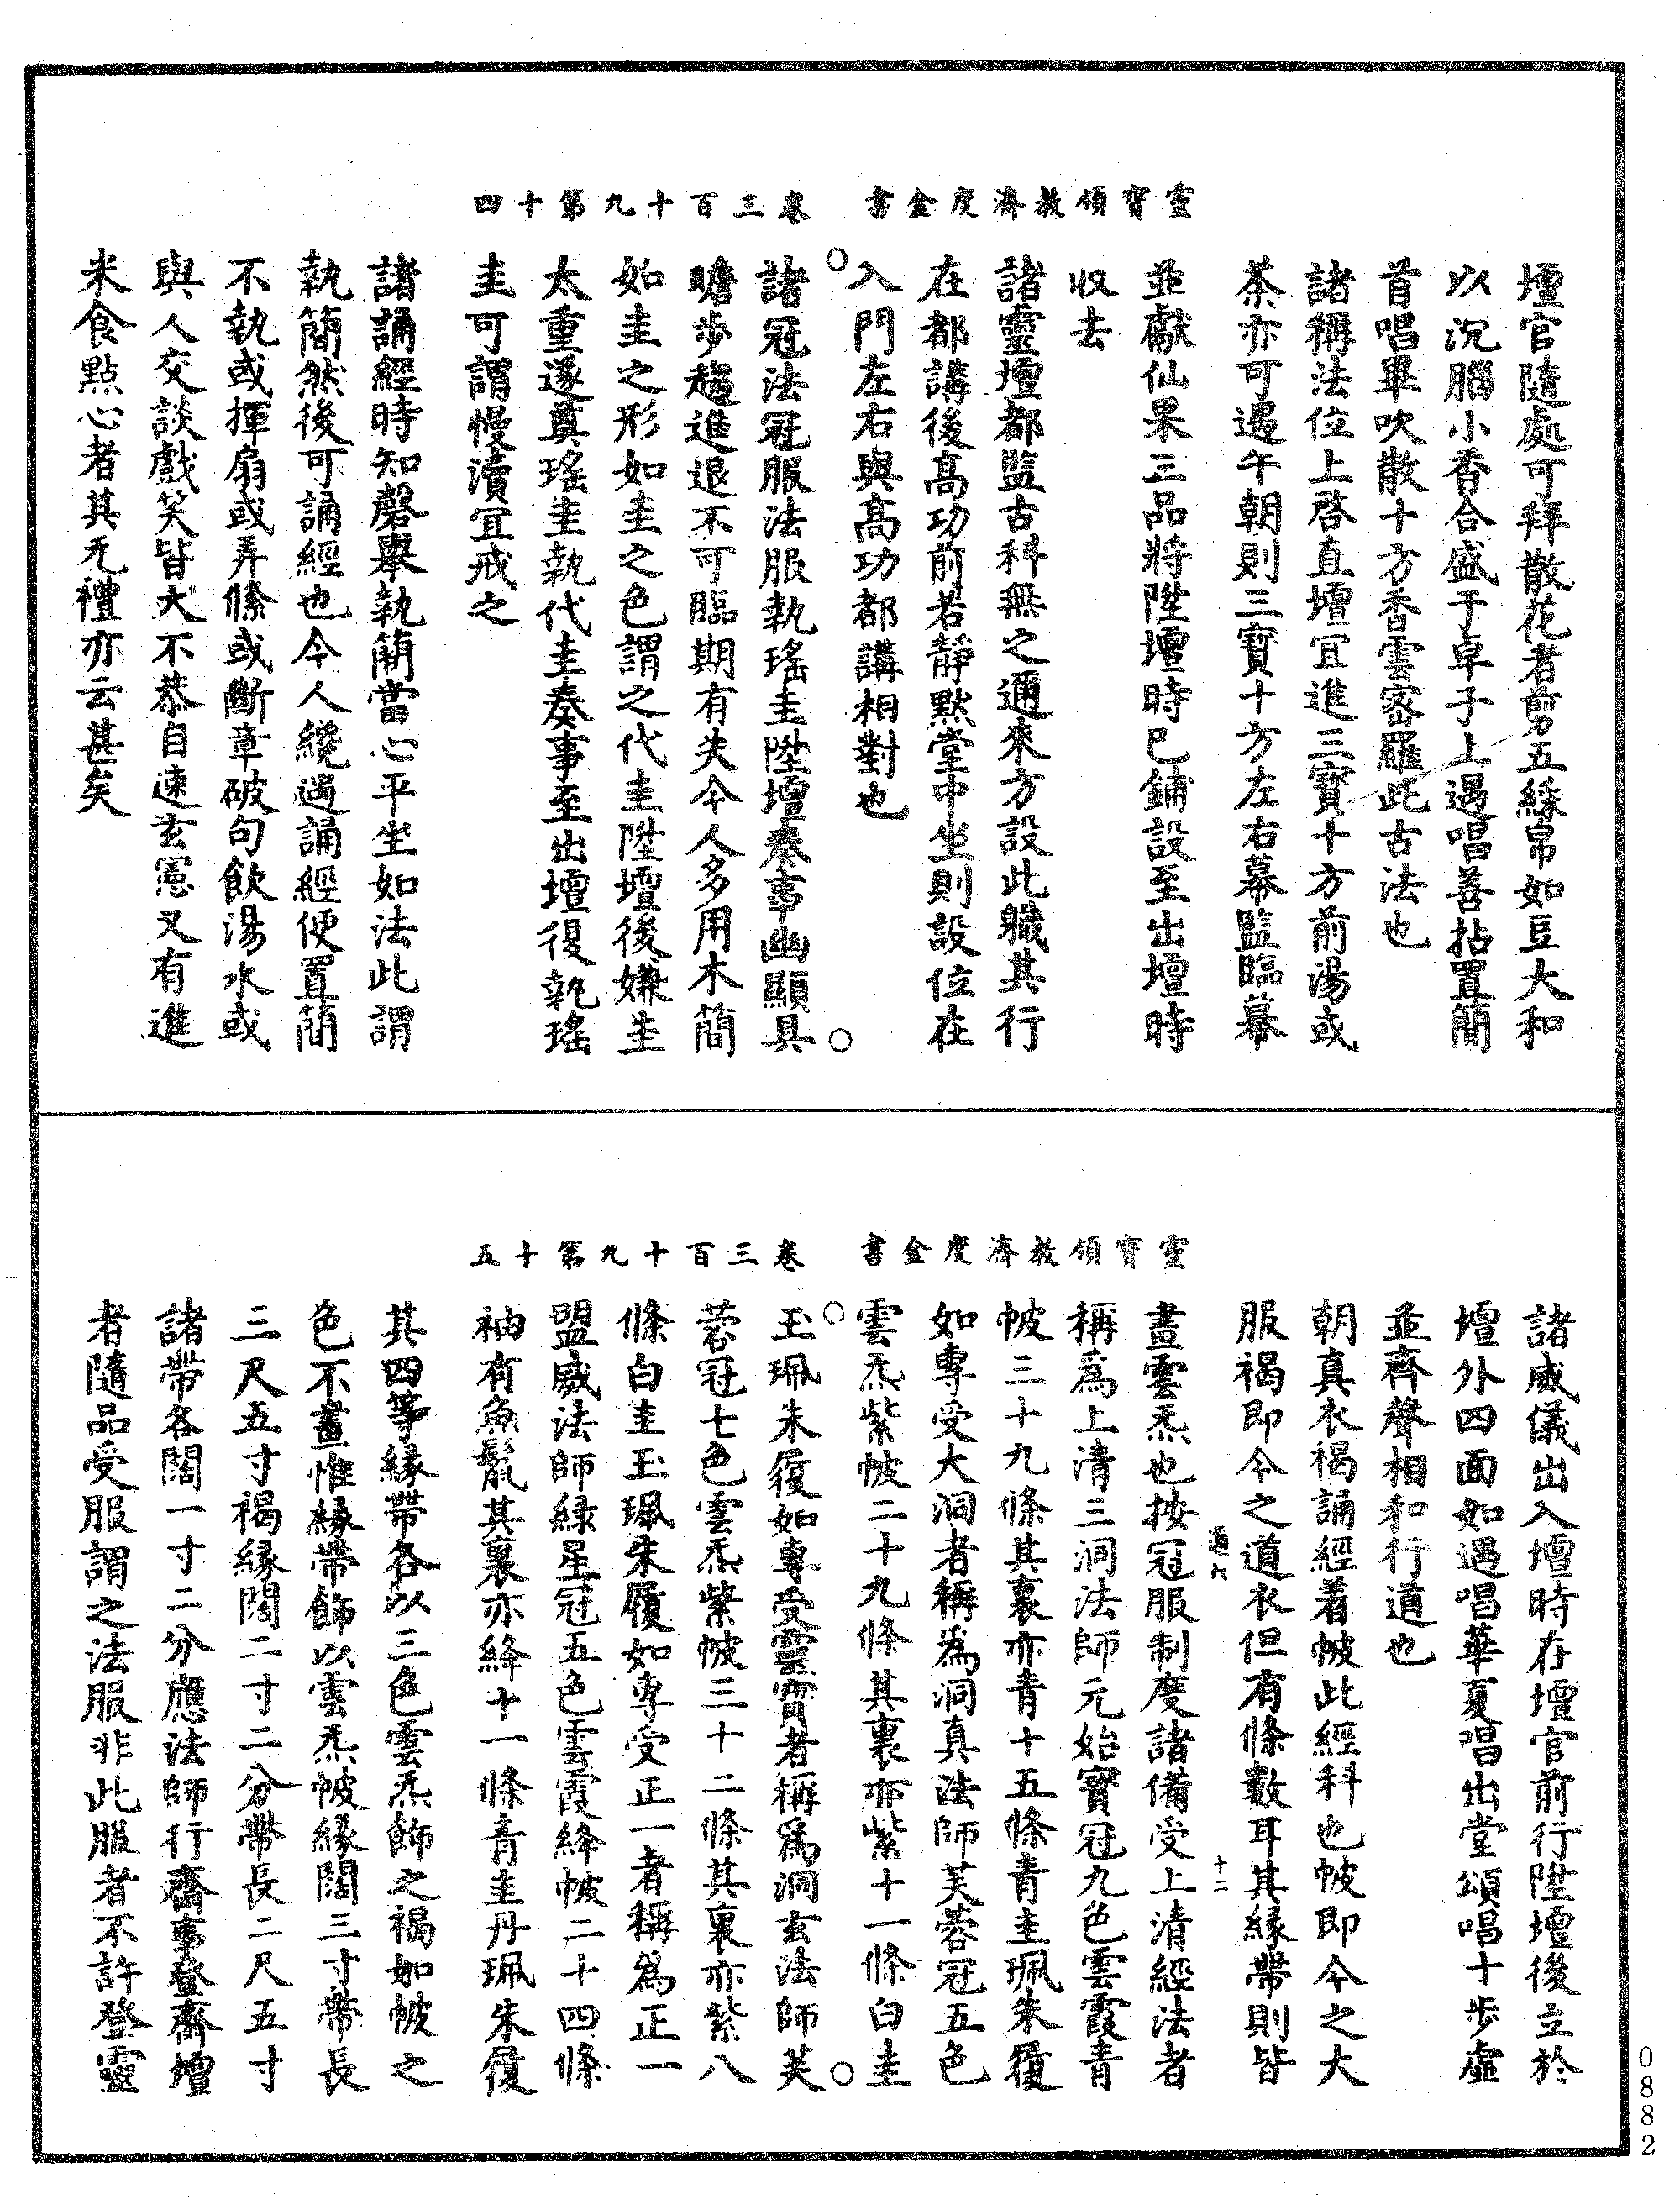 靈寶領教濟度金書
卷三百十九第十四
壇官隨處可拜散花者剪五綵帛如豆大和
以沉腦小香合盛于卓子上遇唱善拈置簡
首唱畢吹散十方香雲密羅此古法也
諸稱法位上啓直壇宜進三寶十方前湯或
茶亦可遇午朝則三寶十方左右幕監臨幕
並獻仙果三品將陞壇時已鋪設至出壇時
収去
諸靈壇都監古科無之邇來方設此職其行
在都講後高功前若靜默堂中坐則設位在
入門左右與高功都講相對也
諸冠法冠服法服執瑤圭陞壇奏事幽顯具
瞻步趨進退不可臨期有失今人多用木簡
如圭之形如圭之色謂之代圭陞壇後嫌圭
太重遂奠瑤圭執代圭奏事至出壇復執瑤
圭可謂慢瀆宜戒之
諸誦經時知磬舉執簡當心平坐如法此謂
執簡然後可誦經也今人纔遇誦經便置簡
不執或揮扇或弄絛或斷章破句飲湯水或
與人交談戲笑皆大不恭自速玄憲又有進
米食點心者其无禮亦云甚矣
靈寶領教濟度金書
卷三百十九第十五
諸威儀出入壇時在壇官前行陞壇後立於
壇外四面如遇唱華夏唱出堂頌唱十步虛
並齊聲相和行道也
朝真衣褐誦經着帔此經科也帔即今之大
服褐即今之道衣但有條數耳其緣帶則皆
十二
畫雲炁也按冠服制度諸備受上清經法者
稱爲上清三洞法師元始寶冠九色雲霞青
帔三十九條其裏亦青十五條青圭珮朱履
如專受大洞者稱爲洞真法師芙蓉冠五色
雲炁紫帔二十九條其裏亦紫十一條白圭
玉珮朱履如專受靈寶者稱爲洞玄法師芙
蓉冠七色雲炁紫帔三十二條其裏亦紫八
條白圭玉珮朱履如專受正一者稱爲正一
盟威法師綠星冠五色雲霞絳帔二十四條
袖有魚鬛其裏亦絳十一條青圭丹珮朱履
其四等緣帶各以三色雲炁飾之褐如帔之
色不畫惟緣帶飾以雲炁帔緣闊三寸帶長
三尺五寸褐緣闊二寸二分帶長二尺五寸
諸帶各闊一寸二分應法師行齋事登齋壇
者隨品受服謂之法服非此服者不許登靈
0882